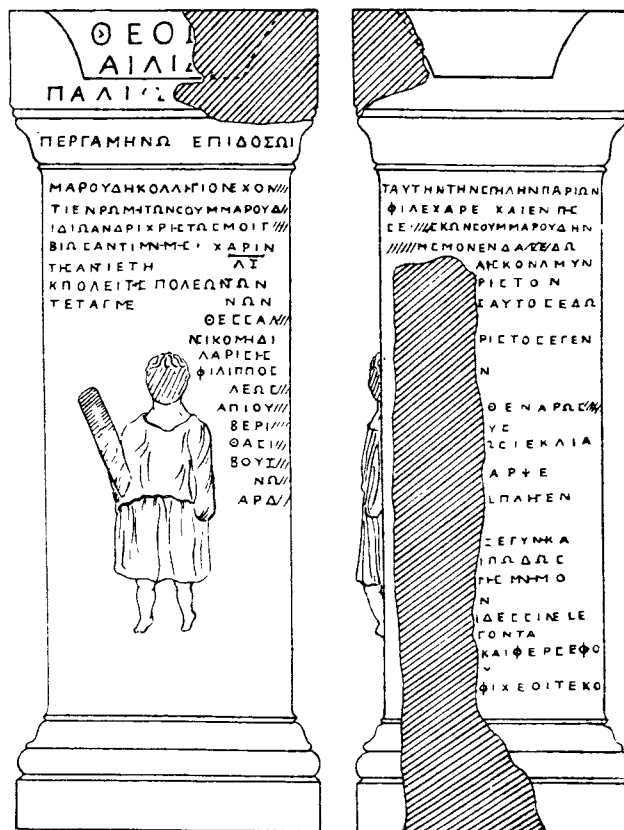 ΘΕΟΙ
ΑΙΛΙ
ΠΑΛΙ
ΠΕΡΓΑΜΗΝΩ ΕΠΙΔΟΣΩΙ
ΜΑΡΟΥΔΗΚΟΛΛΗΓΙΟΝΕΧΟΝ
ΤΙΕΝΡΩΜΗΤΩΝϹΟΥΜΜΑΡΟΥΔ
ΙΔΙΩΑΝΔΡΙΧΡΗϹΤΩϹΜΟΙΓ
ΧΑΡΙΝ
ΤΗϹΑΝΤΙΕΤΗ ΛΣ
ΚΠΟΛΕΙΤΗϹΠΟΛΕΩΝΤΩΝ
ΤΕΤΑΓΜΕ ΝΩΝ
ΘΕϹϹΑΛ
ΝΙΚΟΜΗΔΙ
ΛΑΡΙϹΗϹ
ΦΙΛΙΠΠΟϹ
ΛΕΩϹ
ΑΠΙΟΥ
ΒΕΡΙ
ΘΑϹΙ
ΒΟΥΣ
ΝΩ
ΑΡΔ
ΤΑΥΤΗΝΤΗΝϹΤΗΛΗΝΠΑΡΙΩΝ
ΦΙΛΕΧΑΡΕ ΧΑΙΕΝΠΗϹ
ϹΕ ϹΚΩΝϹΟΥΜΜΑΡΟΥΔΗΝ
ΑΗϹΚΟΝΛΜΥΝ
ΡΙϹΤΟΝ
ϹΑΥΤΟϹΕΔΩ
ΡΙϹΤΟϹΕΓΕΝ
Ν
ΘΕΝΑΡΩϹ
ΥϹ
ΩϹΙΕΚΛΙΑ
ΑΡΨΕ
ΠΛΗΓΕΝ
ΞΕΓΥΝΚΑ
ΠΩΔΩϹ
ΤΗϹΜΝΗΜΟ
Ν
ΙΔΕϹϹΙΝΕΙΕ
ΓΟΝΤΑ
ΚΑΙΦΕΡϹΕΦΟ
Υ
ΦΙΧΕΟΙΤΕΚΟ